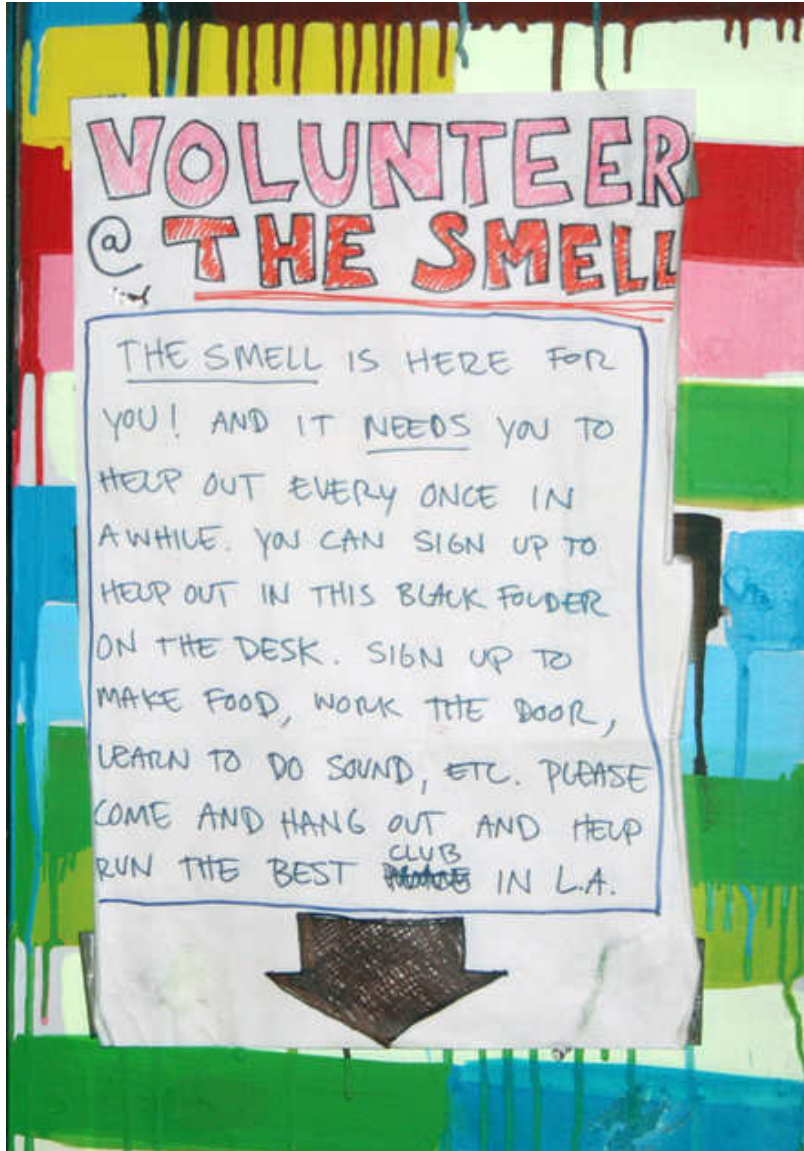 VOLUNTEER
@ THE SMELL
THE SMELL IS HERE FOR
YOU! AND IT NEEDS YOU TO
HELP OUT EVERY ONCE IN
AWHILE. YOU CAN SIGN UP TO
HELP OUT IN THIS BLACK FOLDER
ON THE DESK. SIGN UP TO
MAKE FOOD, WORK THE DOOR,
LEARN TO DO SOUND, ETC. PLEASE
COME AND HANG OUT AND HELP
RUN THE BEST CLUB IN L.A.